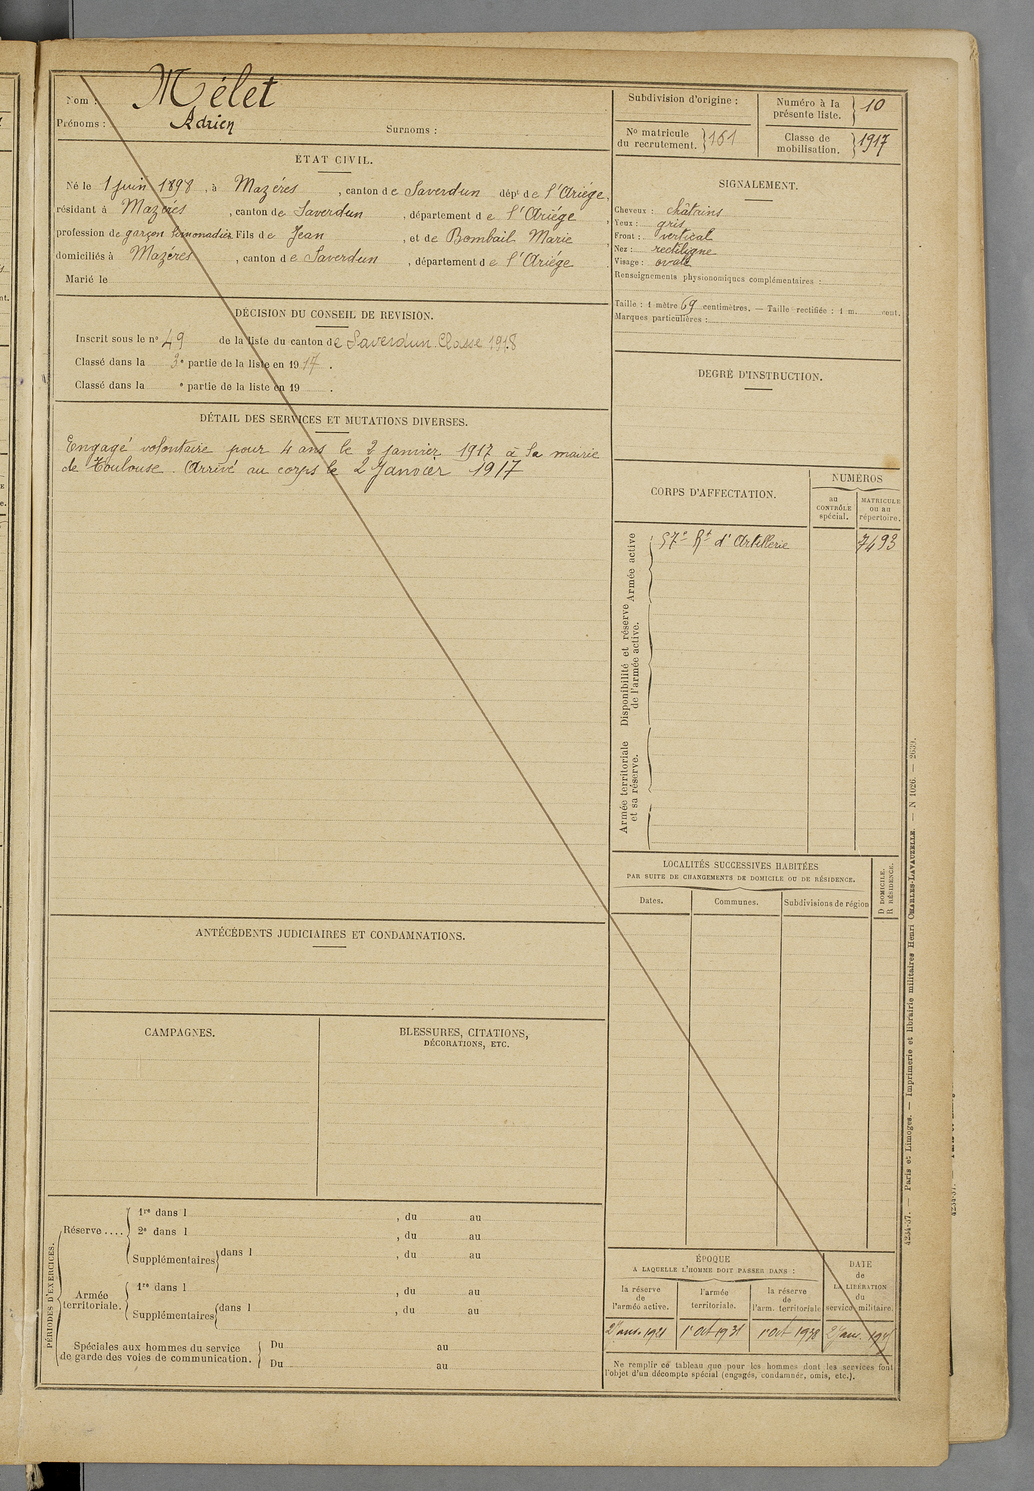 Nom : Mélet
Prénoms : Adrien Surnoms :
ÉTAT CIVIL.
Né le 1 juin 1898, à Mazères, canton de Saverdun dépt de l'Ariége,
résidant à Mazéres, canton de Saverdun, département de l'Ariége,
profession de garçon limonadier Fils de Jean, et de Bombail Marie,
domiciliés à Mazéres, canton de Saverdun, département de l'Ariége.
Marié le
DÉCISION DU CONSEIL DE REVISION.
Inscrit sous le no 49 de la liste du canton de Saverdun Classe 1918
Classé dans la 3e partie de la liste en 1917.
Classé dans la e partie de la liste en 19 .
DÉTAIL DES SERVICES ET MUTATIONS DIVERSES.
Engagé volontaire pour 4 ans le 2 janvier 1917 à la mairie
de Toulouse. Arrivé au corps le 2 Janvier 1917
ANTÉCÉDENTS JUDICIAIRES ET CONDAMNATIONS.
CAMPAGNES.
BLESSURES, CITATIONS,
DÉCORATIONS, ETC.
PÉRIODES D'EXERCICES.
Réserve ....
1re dans l , du au
2e dans l , du au
Supplémentaires dans l , du au
Armée
territoriale.
1re dans l , du au
Supplémentaires dans l , du au
Spéciales aux hommes du service
de garde des voies de communication.
Du au
Du au
Subdivision d'origine :
No matricule
du recrutement. 161
Numéro à la
présente liste. 10
Classe de
mobilisation. 1917
SIGNALEMENT.
Cheveux : châtains
Yeux : gris
Front : vertical
Nez : rectiligne
Visage : ovale
Renseignements physionomiques complémentaires :
Taille : 1 mètre 69 centimètres. — Taille rectifiée : 1 m. cent.
Marques particulières :
DEGRÉ D'INSTRUCTION.
CORPS D'AFFECTATION.
NUMÉROS
au
CONTRÔLE
spécial.
MATRICULE
ou au
répertoire.
Armée active
57e Rt d'Artillerie 7493
Disponibilité et réserve
de l'armée active.
Armée territoriale
et sa réserve.
LOCALITÉS SUCCESSIVES HABITÉES
PAR SUITE DE CHANGEMENTS DE DOMICILE OU DE RÉSIDENCE.
D DOMICILE.
R RÉSIDENCE.
Dates. Communes. Subdivisions de région
ÉPOQUE
A LAQUELLE L'HOMME DOIT PASSER DANS :
la réserve
de
l'armée active.
l'armée
territoriale.
la réserve
de
l'arm. territoriale
DATE
de
LA LIBÉRATION
du
service militaire.
2 janv. 1921 1er oct 1931 1er oct 1938 2 janv.
Ne remplir ce tableau que pour les hommes dont les services font
l'objet d'un décompte spécial (engagés, condamnés, omis, etc.).
4234-37. — Paris et Limoges. — Imprimerie et librairie militaires Henri CHARLES-LAVAUZELLE. — N 1026. — 2639.